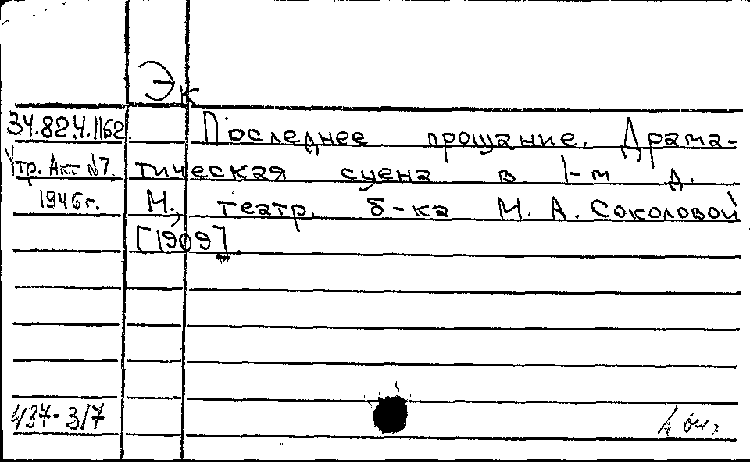 Эк
34.824.1162 Последнее прощание. Драма-
Утр. Акт №7. тическая сцена в 1-м д.
1946 г. М., театр. б-ка М. А. Соколовой
[1909].
437-3/7